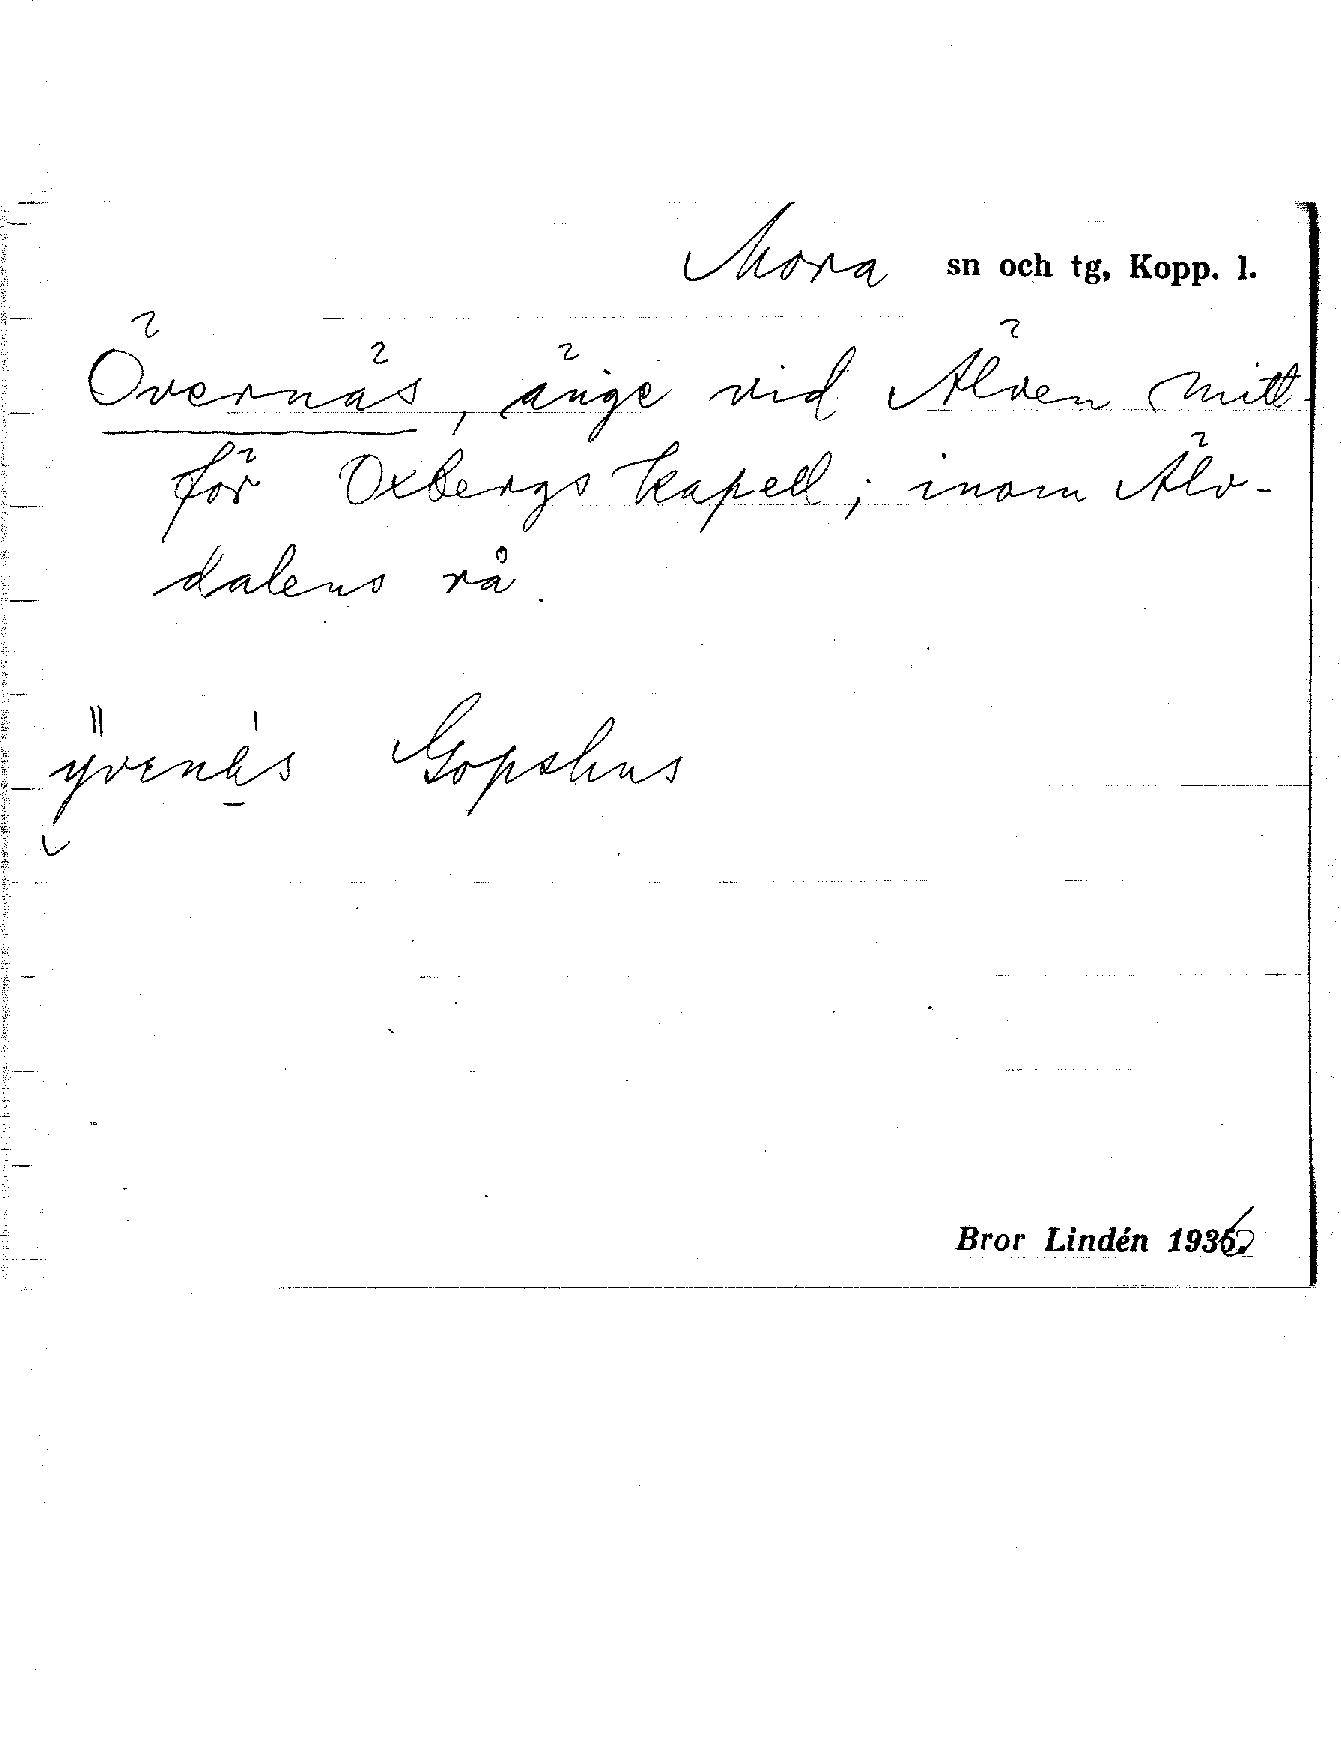 Mora sn och tg, Kopp. l.
Övernäs, änge vid Älven mitt-
för Oxbergs kapell; inom Älv-
dalens rå.
Gopshus
Bror Lindén 1936.